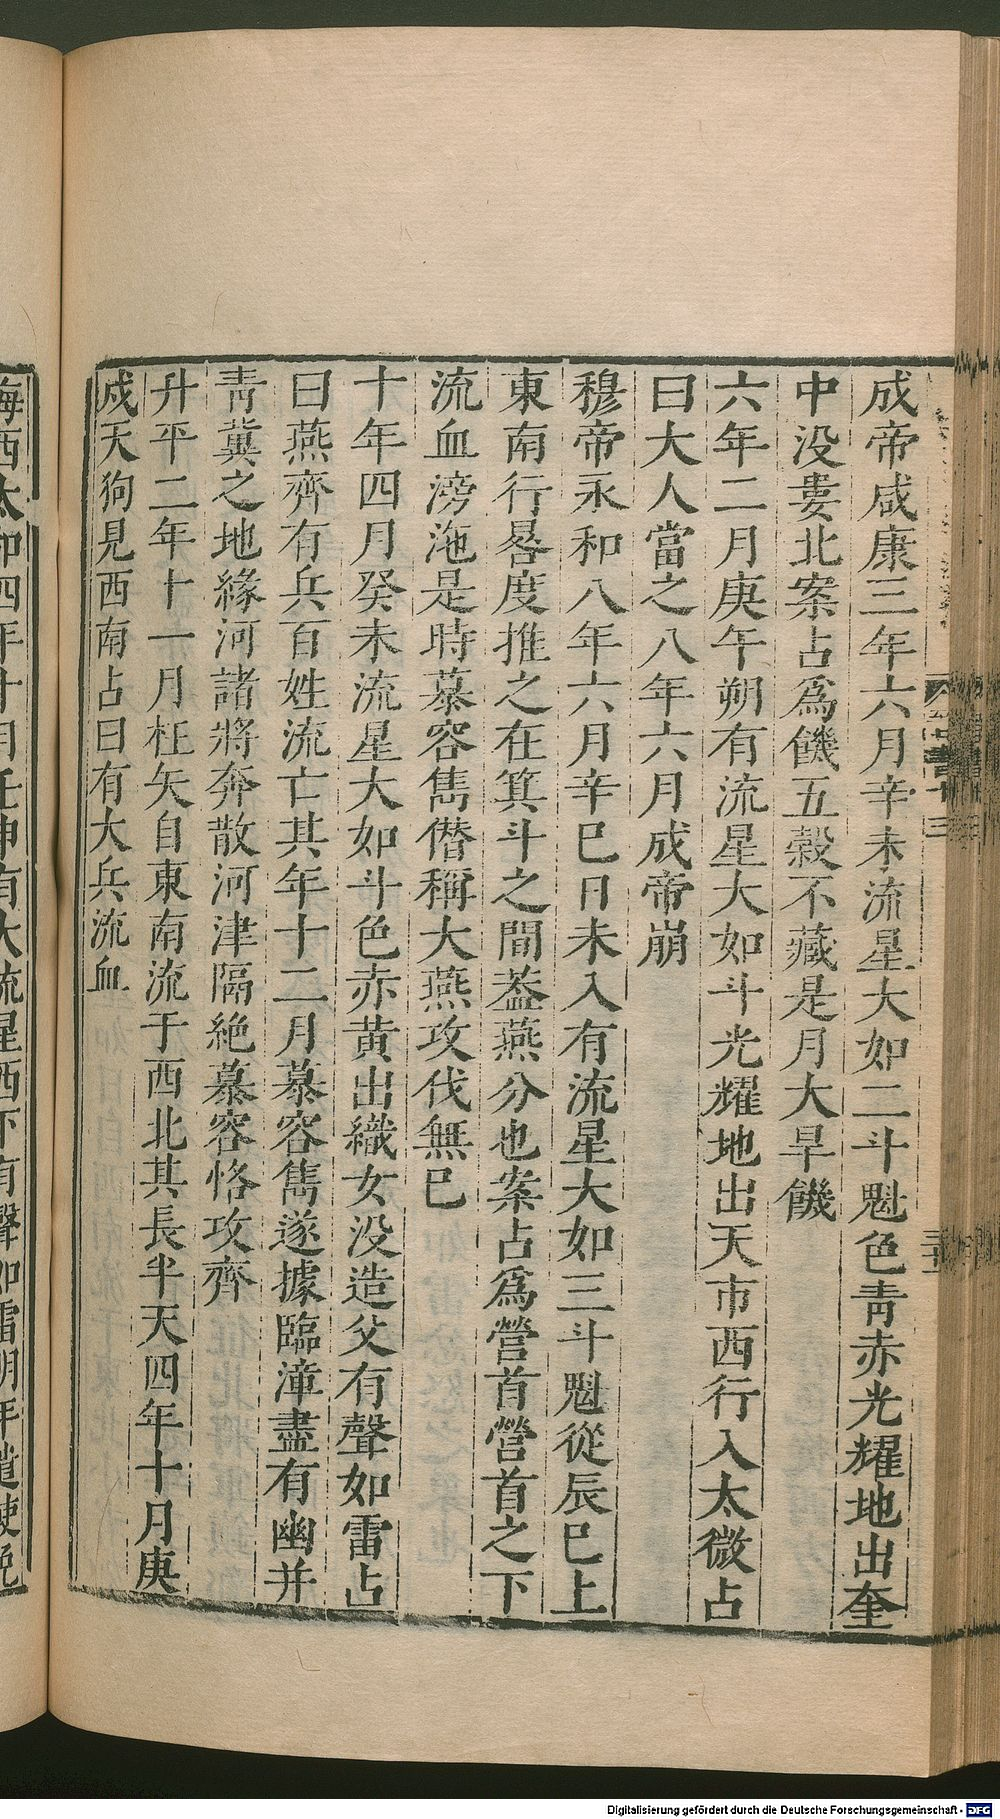 成帝咸康三年六月辛未流星大如二斗魁色青赤光耀地出奎
中没婁北案占爲饑五穀不藏是月大旱饑
六年二月庚午朔有流星大如斗光耀地出天市西行入太微占
曰大人當之八年六月成帝崩
穆帝永和八年六月辛巳日未入有流星大如三斗魁從辰巳上
東南行晷度推之在箕斗之間葢燕分也案占爲營首營首之下
流血滂沲是時慕容雋僣稱大燕攻伐無已
十年四月癸未流星大如斗色赤黄出織女没造父有聲如雷占
曰燕齊有兵百姓流亡其年十二月慕容雋遂據臨漳盡有幽并
青冀之地緣河諸將奔散河津隔絶慕容恪攻齊
升平二年十一月枉矢自東南流于西北其長半天四年十月庚
戍天狗見西南占曰有大兵流血
海西太和四年十月壬申有大流星西下有聲如雷明年遣使免
Digitalisierung gefördert durch die Deutsche Forschungsgemeinschaft - DFG